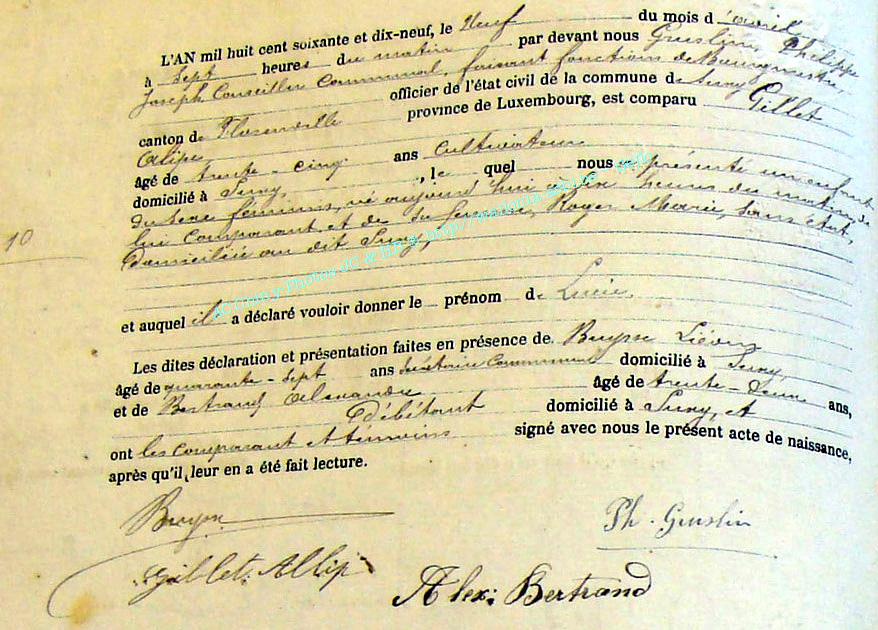 L'AN mil huit cent soixante et dix-neuf, le Neuf du mois d'avril
à Sept heures du matin par devant nous Guislin, Philippe
Joseph Conseiller Communal, faisant fonctions de Bourgmestre,
officier de l'état civil de la commune de Suxy
canton de Florenville province de Luxembourg, est comparu Gillet
Alipe,
âgé de trente-cinq ans Cultivateur
domicilié à Suxy, , le quel nous a présenté un enfant
du sexe féminin, né aujourd'hui à six heures du matin, de
10
lui comparant et de sa femme, Roger Marie, sans état,
domiciliée au dit Suxy,
et auquel il a déclaré vouloir donner le prénom de Lucie,
Les dites déclaration et présentation faites en présence de Buysse Liévin
âgé de quarante-sept ans Secrétaire Communal domicilié à Suxy,
et de Bertrand Alexandre âgé de trente- ans,
Débitant domicilié à Suxy, et
ont les comparant et témoins signé avec nous le présent acte de naissance,
après qu'il leur en a été fait lecture.
Buysse
Ph. Guislin
Gillet Allip
Alex: Bertrand